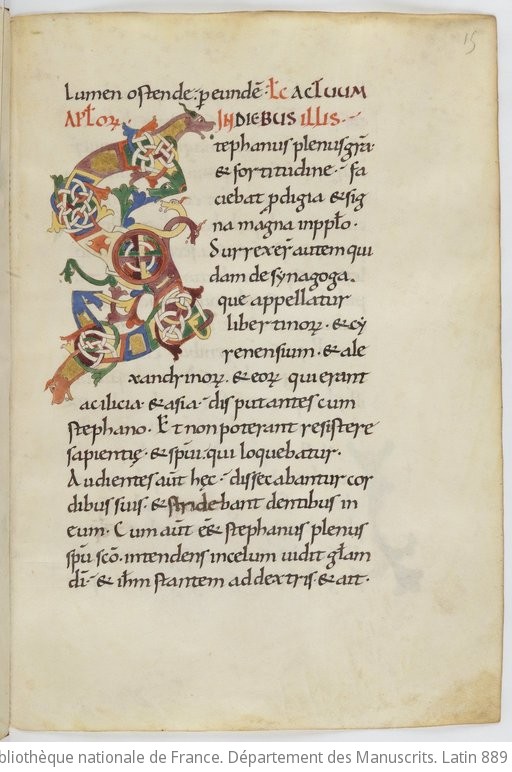 15
Lumen ostende. p eundē. Łc ACTUUM
APŁOꝜ. IN DIEBUS ILLIS.
Stephanus plenus grā
& fortitudine. fa
ciebat pdigia & sig
na magna in pplo.
Surrexer̄ autem qui
dam de synagoga.
que appellatur
libertinoꝝ. & cy
renensium. & ale
xandrinoꝝ. & eoꝝ qui erant
a cilicia. & asia. disputantes cum
stephano. Et non poterant resistere
sapientię. & spui. qui loquebatur.
Audientes aūt hęc. dissecabantur cor
dibus suis. & stridebant dentibus in
eum. Cum aūt ēet stephanus plenus
spū scō. intendens in celum uidit głam
dī. & ihm stantem ad dextris. & ait.
bliothèque nationale de France. Département des Manuscrits. Latin 889